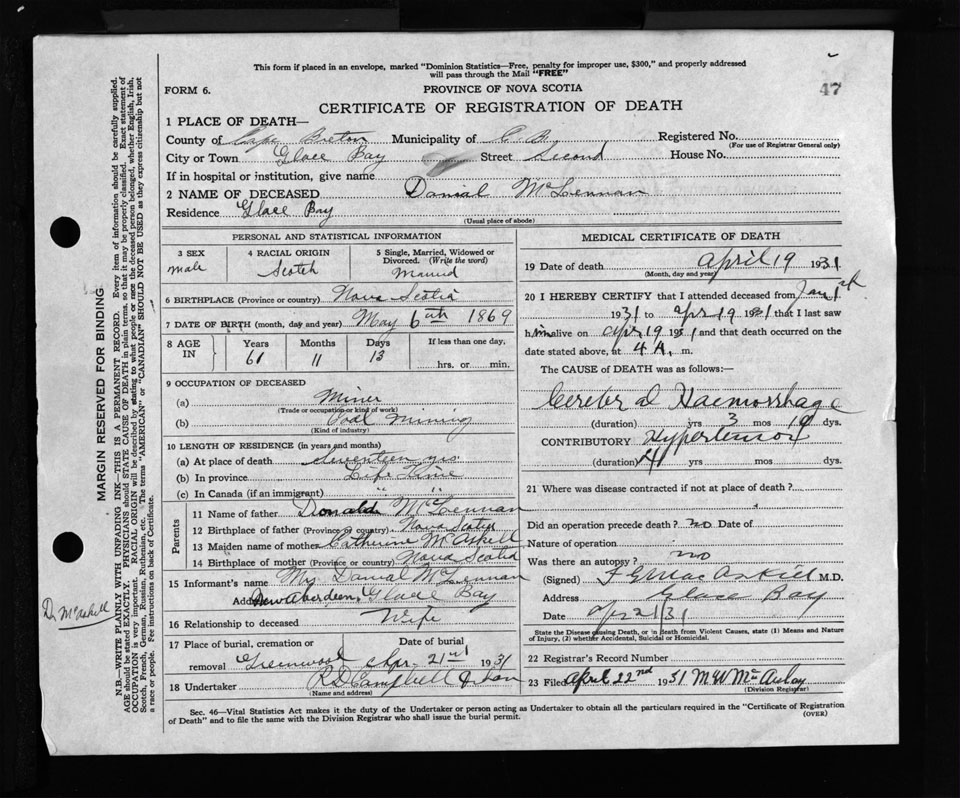 This form if placed in an envelope, marked "Dominion Statistics—Free, penalty for improper use, $300," and properly addressed
will pass through the Mail "FREE"
47
FORM 6.
PROVINCE OF NOVA SCOTIA
CERTIFICATE OF REGISTRATION OF DEATH
1 PLACE OF DEATH—
County of Cape Breton Municipality of C. B. Registered No.
(For use of Registrar General only)
City or Town Glace Bay Street Second House No.
If in hospital or institution, give name
2 NAME OF DECEASED Danial McLennan
Residence Glace Bay
(Usual place of abode)
PERSONAL AND STATISTICAL INFORMATION
3 SEX
male
4 RACIAL ORIGIN
Scotch
5 Single, Married, Widowed or
Divorced. (Write the word)
Married
6 BIRTHPLACE (Province or country) Nova Scotia
7 DATE OF BIRTH (month, day and year) May 6th 1869
8 AGE IN
Years Months Days
61 11 13
If less than one day,
hrs. or min.
9 OCCUPATION OF DECEASED
(a) Miner
(Trade or occupation or kind of work)
(b) Coal Mining
(Kind of industry)
10 LENGTH OF RESIDENCE (in years and months)
(a) At place of death seventeen yrs
(b) In province Life Time
(c) In Canada (if an immigrant) " "
Parents
11 Name of father Donald McLennan
12 Birthplace of father (Province or country) Nova Scotia
13 Maiden name of mother Catherine McAskell
14 Birthplace of mother (Province or country) Nova Scotia
15 Informant's name Mrs Danial McLennan
Address New Aberdeen, Glace Bay
16 Relationship to deceased Wife
17 Place of burial, cremation or removal Greenwood
Date of burial
Apr. 21st 1931
18 Undertaker R D Campbell & Son
(Name and address)
MEDICAL CERTIFICATE OF DEATH
19 Date of death April 19 1931
(Month, day and year)
20 I HEREBY CERTIFY that I attended deceased from Jan 1st
1931 to Apr 19 1931 that I last saw
him alive on Apr 19 1931 and that death occurred on
date stated above, at 4 A. m.
The CAUSE of DEATH was as follows:—
Cerebral Haemorrhage
(duration) yrs 3 mos 19 dys.
CONTRIBUTORY Hypertension
(duration) yrs mos dys.
21 Where was disease contracted if not at place of death?
Did an operation precede death? no Date of
Nature of operation
Was there an autopsy? no
(Signed) F G MacAskill M.D.
Address Glace Bay
Date Apr 21/31
State the Disease causing Death, or in death from Violent Causes, state (1) Means and Nature
of Injury, (2) whether Accidental, Suicidal or Homicidal.
22 Registrar's Record Number
23 Filed April 22nd 1931 M W McAulay
(Division Registrar)
Sec. 46—Vital Statistics Act makes it the duty of the Undertaker or person acting as Undertaker to obtain all the particulars required in the "Certificate of Registration
of Death" and to file the same with the Division Registrar who shall issue the burial permit.
(OVER)
MARGIN RESERVED FOR BINDING
N.B.—WRITE PLAINLY WITH UNFADING INK—THIS IS A PERMANENT RECORD. Every item of information should be carefully supplied.
AGE should be stated EXACTLY. PHYSICIANS should STATE CAUSE OF DEATH in plain terms, so that it may be properly classified. Exact statement of
OCCUPATION is very important. RACIAL ORIGIN will be described by stating to what people or race the deceased person belonged, whether English, Irish,
Scotch, French, German, Russian, Ruthenian, etc. The terms "AMERICAN" or "CANADIAN" SHOULD NOT BE USED as they express citizenship but not
a race or people. Fee instructions on back of Certificate.
Dr McAskell